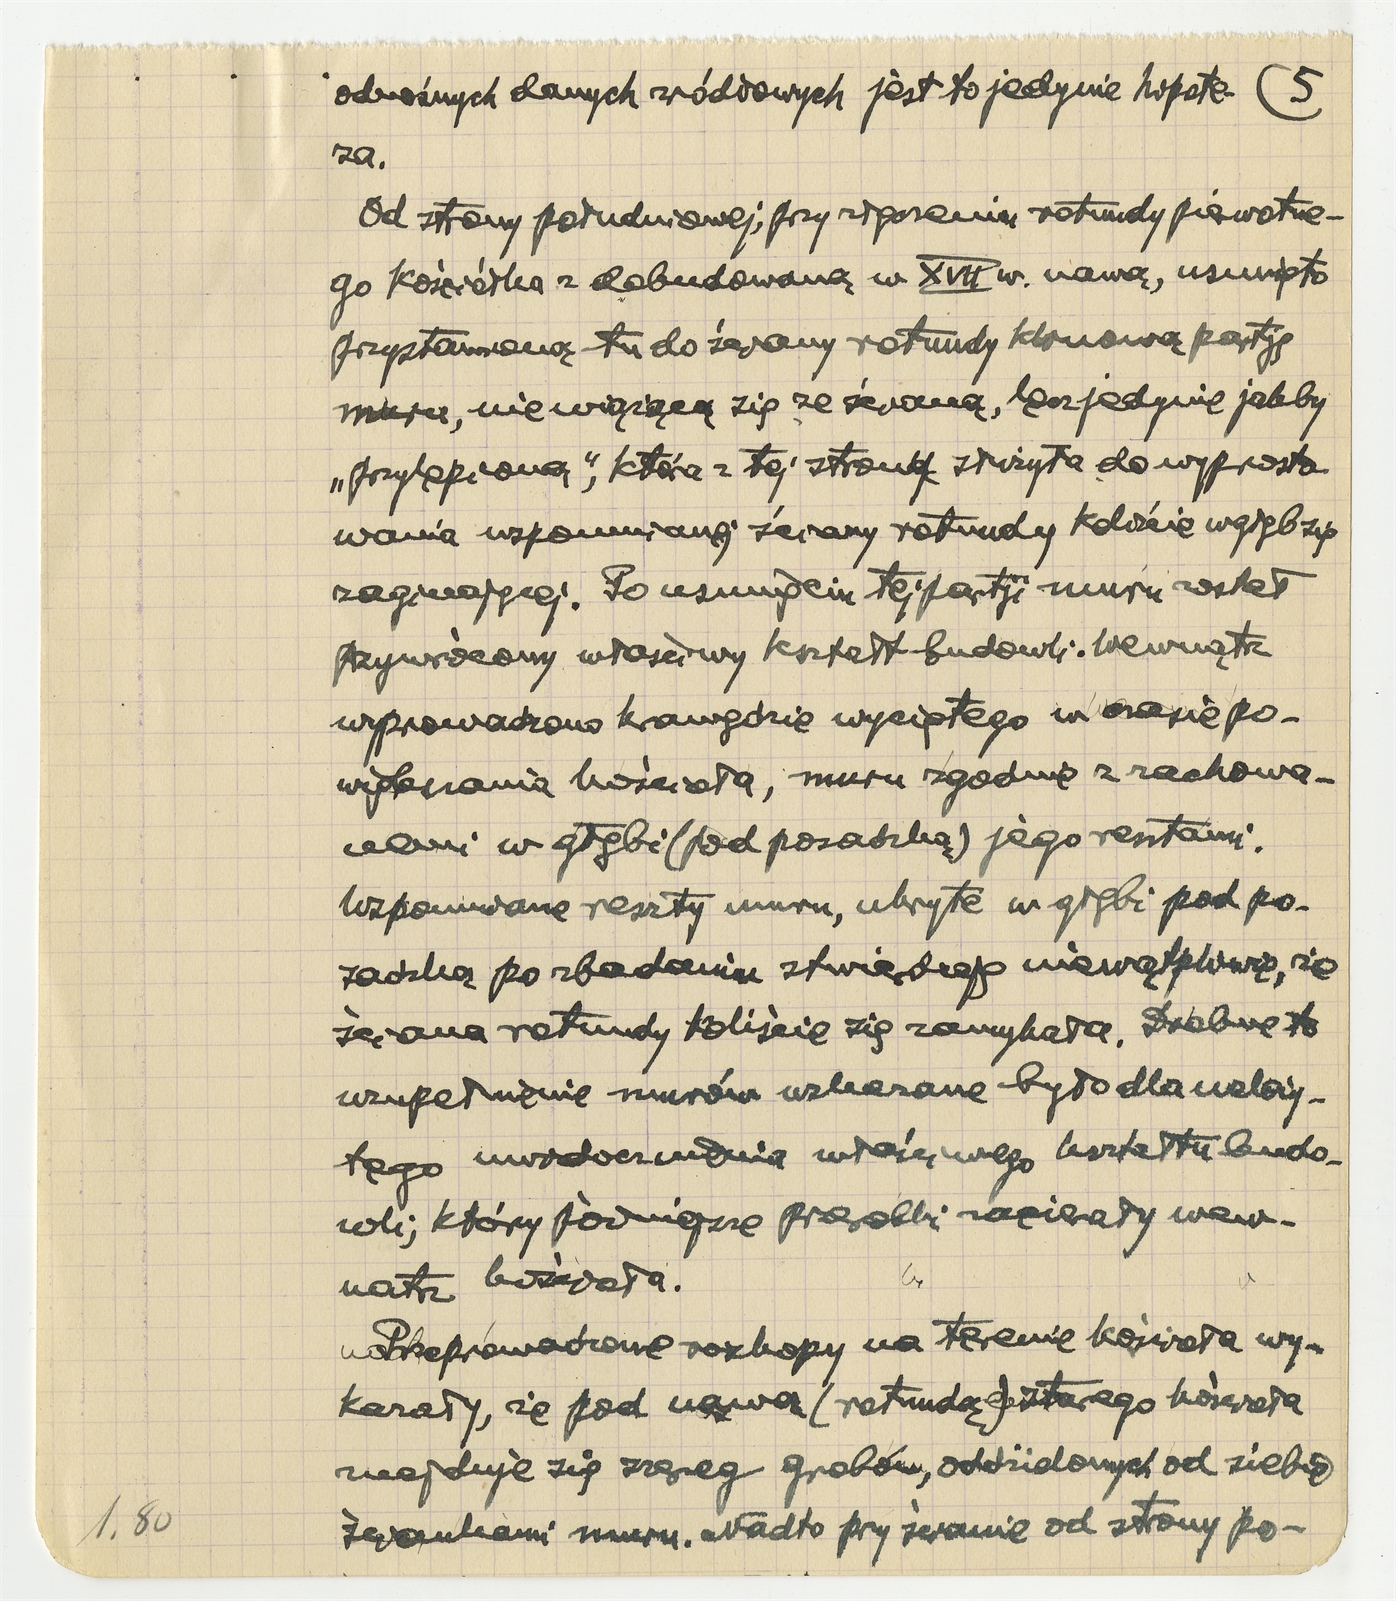 odnośnych danych źródłowych jest to jedynie hipote- (5
za.
Od strony południowej, przy zgorzeniu rotundy pierwotne-
go kościółka z dobudowaną w XVII w. nawą, usunięto
przystawioną tu do ściany rotundy klinową partję
muru, nie wiążącą się ze ścianą, lecz jedynie jakby
„przylepioną", która z tej strony służyła do wyprosto
wania wspomnianej ściany rotundy koliście w głąb się
zaginającej. Po usunięciu tej partji muru został
przywrócony właściwy kształt budowli. Wewnątrz
wyprowadzono krawędzie wyciętego w czasie po-
większania kościoła, muru zgodnie z zachowa-
nemi w głębi (pod posadzką) jego resztami.
Wspomniane reszty muru, ukryte w głębi pod po-
sadzką po zbadaniu stwierdzają niewątpliwie, że
ściana rotundy koliście się zamykała. Drobne to
uzupełnienie murów wskazane było dla należy-
tego uwidocznienia właściwego kształtu budo-
wli, który późniejsze przeróbki zacierały wew-
nątrz kościoła.
Przeprowadzone rozkopy na terenie kościoła wy-
kazały, że pod nawą (rotundą) starego kościoła
znajduje się szereg grobów, oddzielonych od siebie
ściankami muru. Nadto przy ścianie od strony po-
1.80